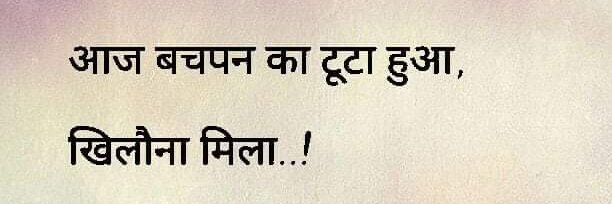 आज बचपन का टूटा हुआ,
खिलौना मिला..!